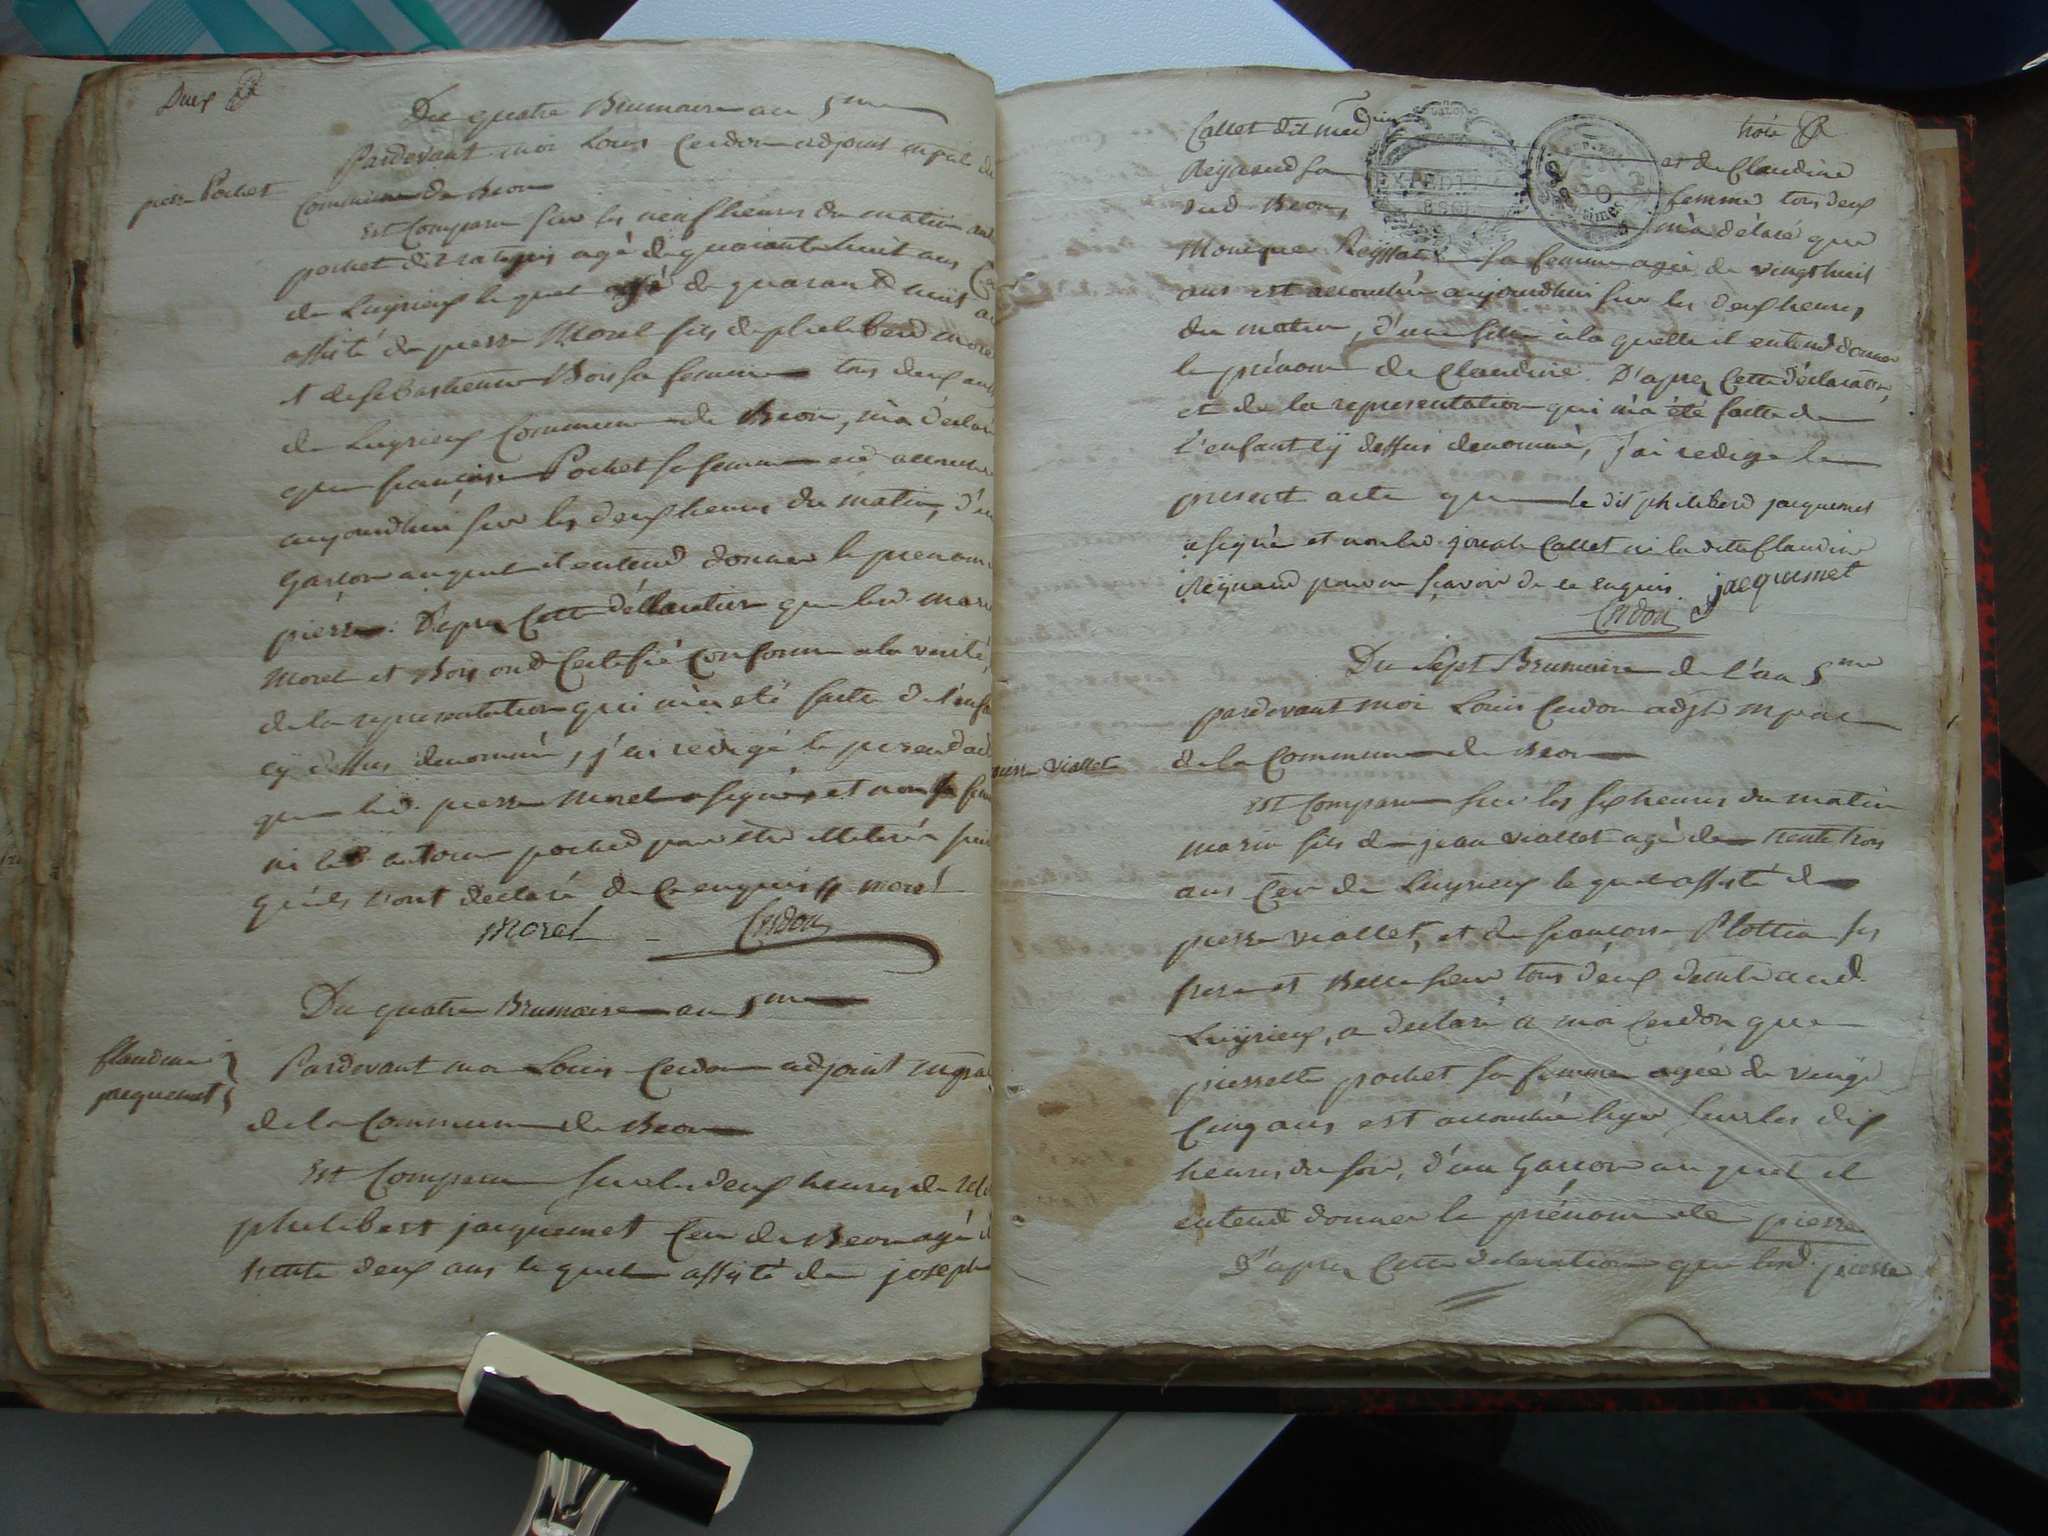 Deux
Du quatre Brumaire an 5me
Pardevant moi Louis Cerdon adjoint mpal de
pierre Pochet
Commune de Beon
est Comparu sur les neuf heures du matin
pochet dit agé de quarante huit ans
de Luyrieux lequel agé de quarante huit
assisté de pierre Morel fils de philiberd morel
et de sebastienne Bois sa femme tous deux
de Luyrieux Commune de Beon, m'a déclaré
que françoise Pochet sa femme est accouchée
aujourdhui sur les deux heures du matin, d'un
Garcon auquel il entend donner le prenom
pierre. D'apres Cette déclaration que lesd. mari
Morel et Bois ond Certifié Conforme a la verité,
de la representation qui m'a été faite de l'enfant
cy dessus denommé, j'ai redigé le presend
que led. pierre Morel a signé et non sa
ni led. antoine pochet pour etre illiteré
qu'ils n'ont declaré de Ce enquis Morel
Morel Cerdon
Du quatre Brumaire an 5me
Claudine
jacquemet
Pardevant moi Louis Cerdon adjoint mpal
de la Commune de Beon
Est Comparu sur les deux heures de
philibert jacquemet Cer de Beon agé de
trente deux ans lequel assisté de joseph
trois
Callet dit et de Claudine
Reynaud sa femme tous deux
dud. Beon, m'a déclaré que
Monique sa femme agée de vingt huit
ans est accouchée aujourdhui sur les deux heures
du matin, d'une fille a laquelle il entend donner
le prénom de Claudine. D'apres Cette déclaration,
et de la representation qui m'a été faitte de
l'enfant cÿ dessus denommé, j'ai redigé le
present acte que le dit philiberd jacquemet
a signé et non led. joseph Callet ni la ditte Claudine
Reynaud pour ne scavoir de ce enquis. jacquemet
Cerdon
Du Sept Brumaire de l'an 5me
pardevant moi Louis Cerdon adjt mpal
de la Commune de Beon
pierre Viallet
est Comparu sur les six heures du matin
marin fils de jean Viallet agé de trente trois
ans Cer de Luyrieux lequel assisté de
pierre Viallet, et de françoise Plottin ses
frere et Belle soeur tous deux dud.
Luÿrieux, a declaré a moi Cerdon que
pierrette pochet sa femme agée de vingt
Cinq ans est accouchée hyer sur les dix
heures du soir, d'un Garcon auquel il
entend donner le prénom de pierre
D'apres Cette déclaration que lesd. pierre